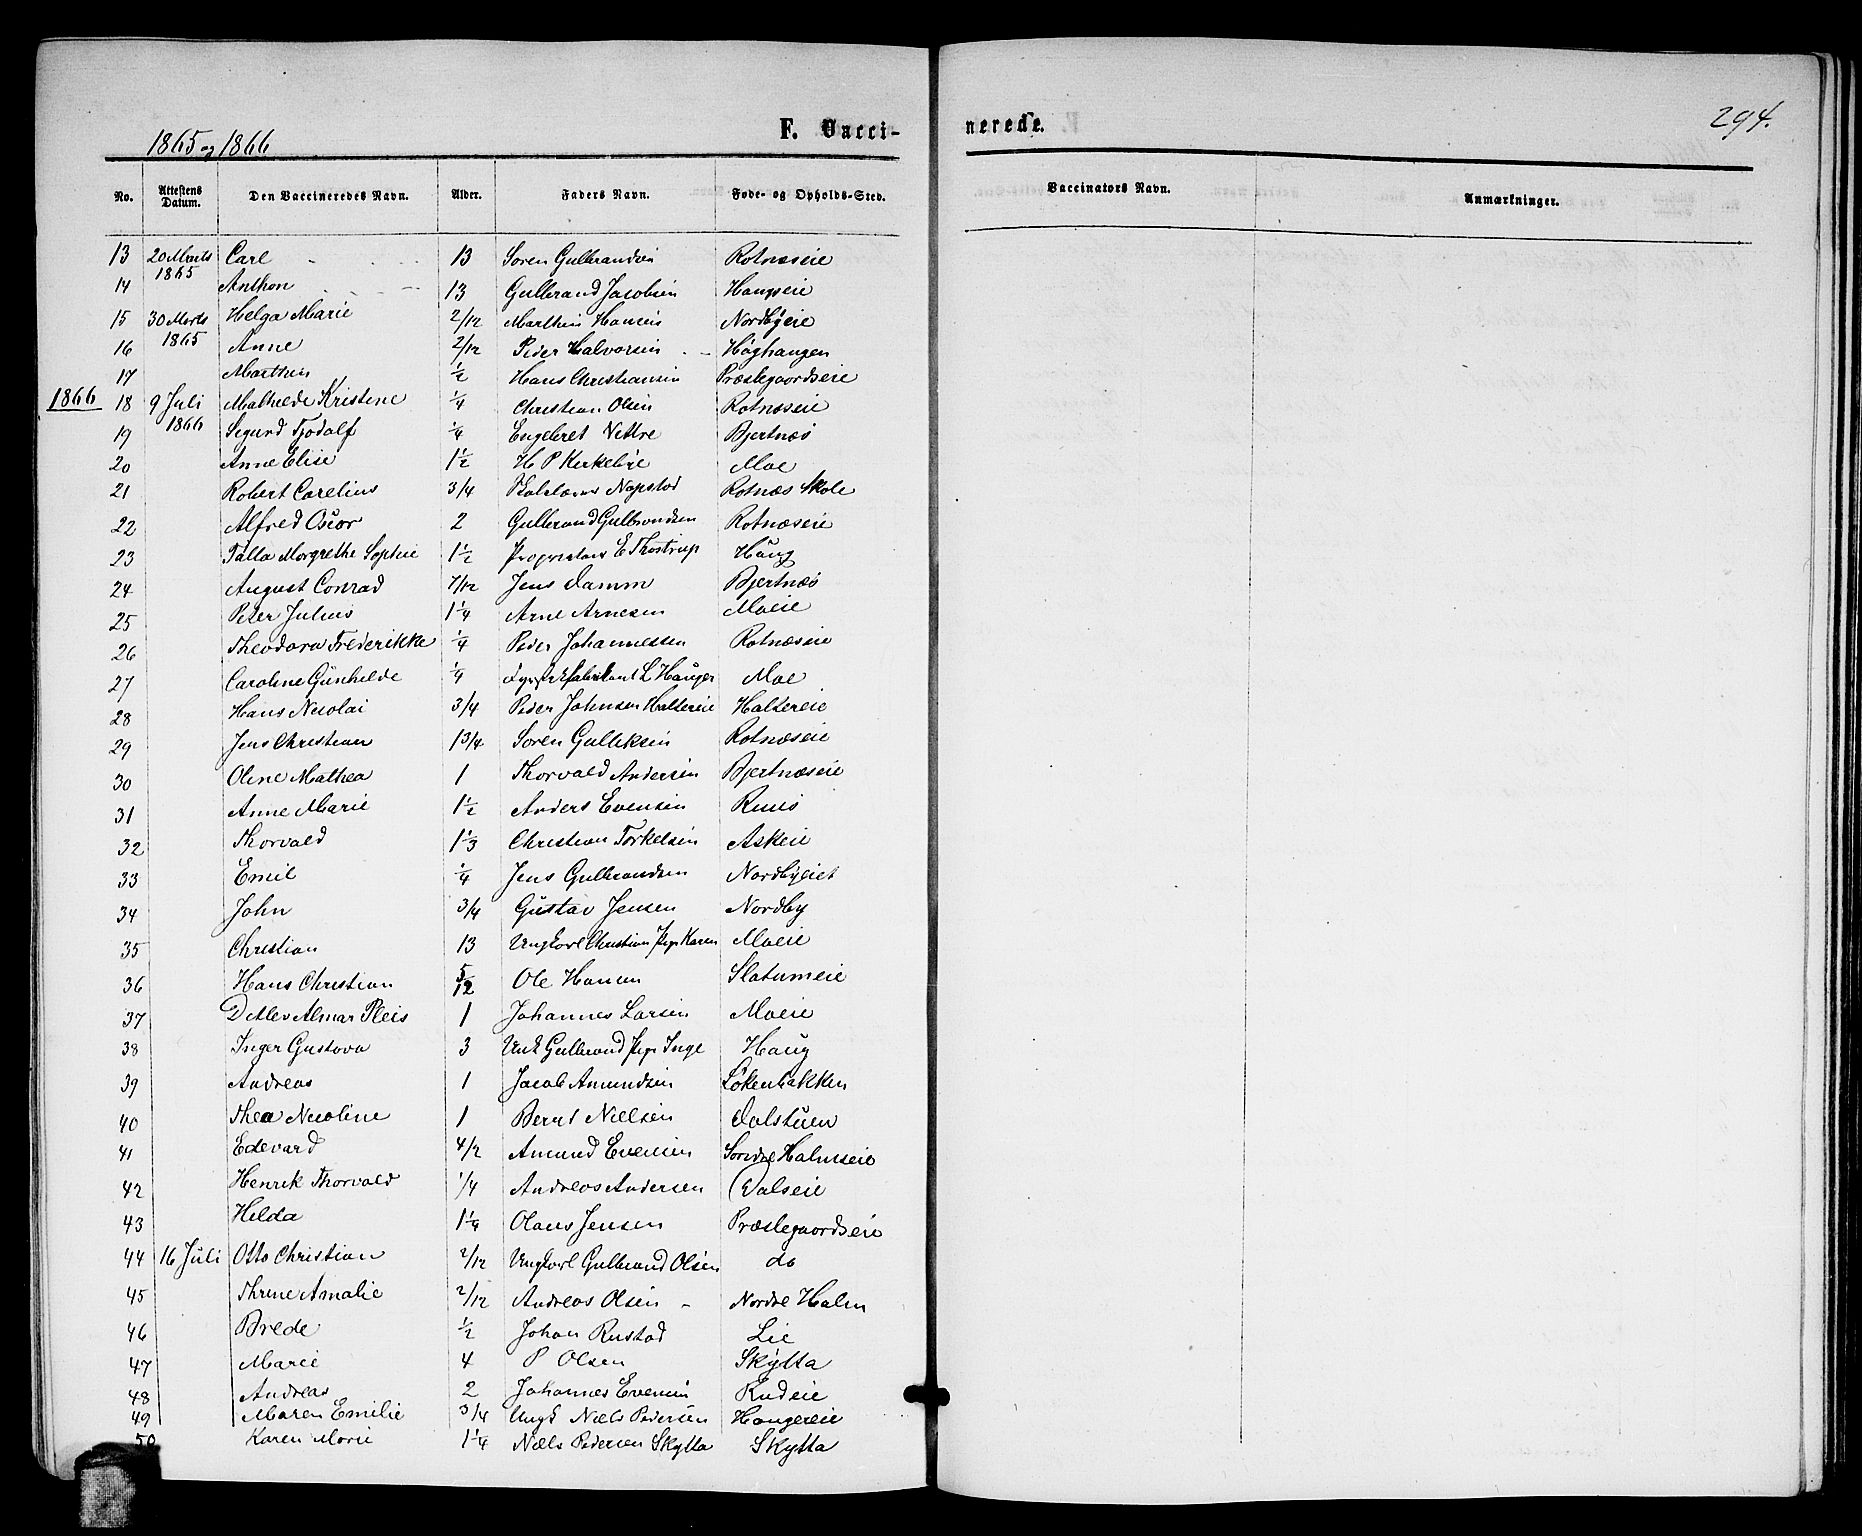 1865 og 1866
F. Vacci-
nerede.
294.
No. Attestens Datum. Den Vaccineredes Navn. Alder. Faders Navn. Føde- og Opholds-Sted. Vaccinators Navn. Anmærkninger.
13 20 Marts 1865 Carl 13 Soren Gulbrandsen Rotnæseie
14 Anthon 13 Gulbrand Jacobsen Haugseie
15 30 Marts 1865 Helga Marie 2/12 Marthin Hansen Nordbyeie
16 Anne 2/12 Peder Halvorsen Høghaugen
17 Marthin 1/2 Hans Christiansen Præstegaardseie
1866 18 9 Juli 1866 Mathilde Kristine 1/4 Christian Olsen Rotnæseie
19 Sigurd Tjodalf 1/4 Engebret Vettre Bjertnæs
20 Anne Elise 1 1/2 H P Kirkebye Moe
21 Robert Carelius 3/4 Napstad Rotnæs Skole
22 Alfred Oscar 2 Gulbrand Gulbrandsen Rotnæseie
23 Talla Margrethe Sophie 1 1/2 Proprietær E Thostrup Haug
24 August Conrad 7/12 Jens Damm Bjertnæs
25 Peter Julius 1 1/4 Arne Arnesen Moeie
26 Theodora Frederikke 1/4 Peder Johannessen Rotnæseie
27 Caroline Gunhilde 1/4 L Hauger Moe
28 Hans Nicolai 3/4 Peder Johnsen Haltereie Haltereie
29 Jens Christian 1 3/4 Soren Gulliksen Rotnæseie
30 Oline Mathea 1 Thorvald Andersen Bjertnæseie
31 Anne Marie 1 1/2 Anders Evensen
32 Thorvald 1 1/3 Christian Torkelsen Askeie
33 Emil 1/4 Jens Gulbrandsen Nordbyeiet
34 John 3/4 Gustav Jensen Nordby
35 Christian 13 Ungkarl Christian Pige Karen Moeie
36 Hans Christian 5/12 Ole Hansen Slatumeie
37 Detlev Almar 1 Johannes Larsen Moeie
38 Inger Gustava 3 Unk Gulbrand Pige Inge Haug
39 Andreas 1 Jacob Amundsen Løkenbakken
40 Thea Nicoline 1 Bernt Nielsen Dalstuen
41 Edevard 4/2 Amund Evensen Søndre Halmseie
42 Henrik Thorvald 1/4 Andreas Andersen Dalseie
43 Hilda 1 1/4 Olaus Jensen Præstegaardseie
44 16 Juli Otto Christian 2/12 Ungkarl Gulbrand Olsen do
45 Thrine Amalie 2/12 Andreas Olsen Nordre Halm
46 Brede 1/2 Johan Rustad Lie
47 Marie 4 P Olsen Skytta
48 Andreas 2 Johannes Evensen Rudeie
49 Maren Emilie 3/4 Ungk Niels Pedersen Haugereie
50 Karen Marie 1 1/4 Niels Pedersen Skytta Skytta